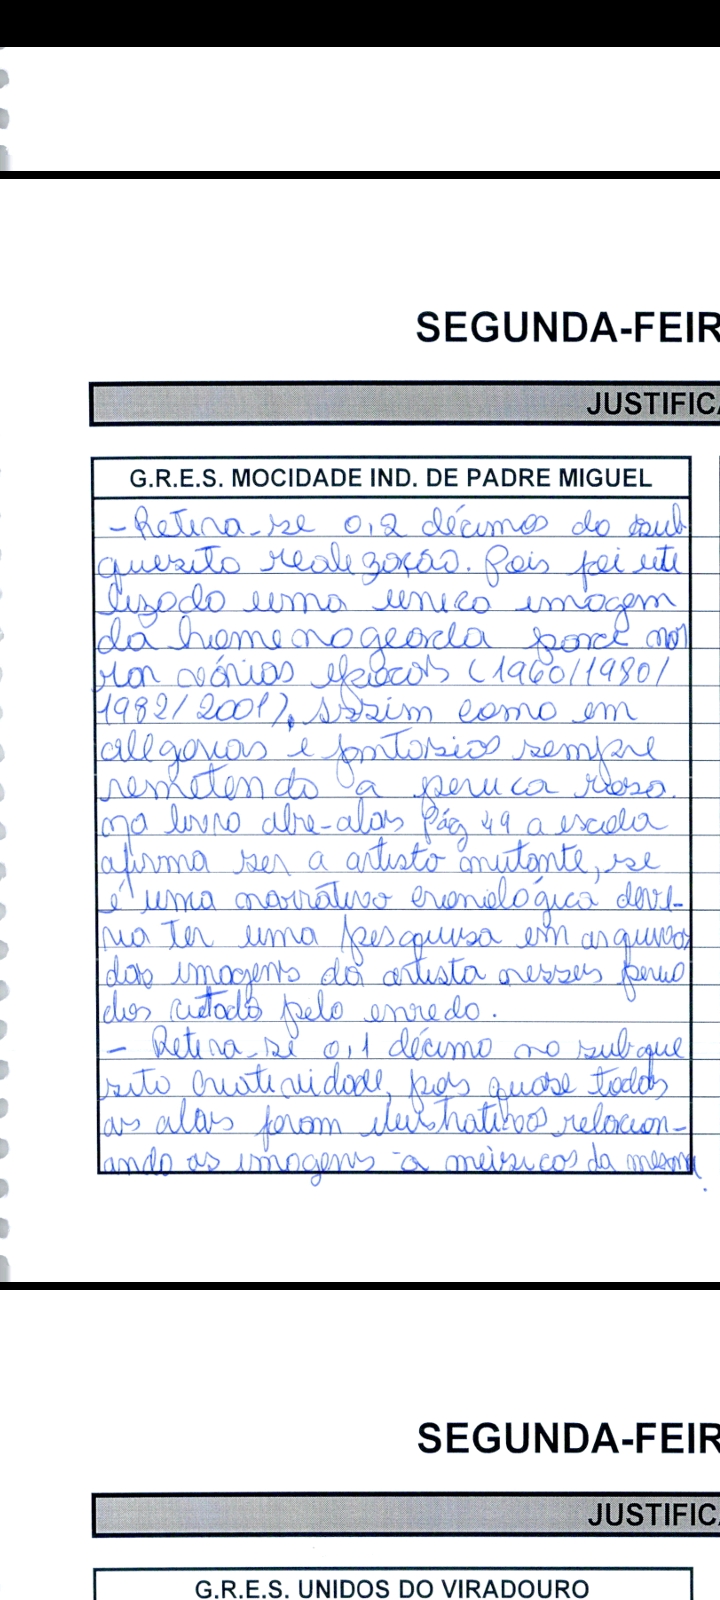 SEGUNDA-FEIR
JUSTIFICA
G.R.E.S. MOCIDADE IND. DE PADRE MIGUEL
- Retira-se 0,2 décimos do sub
quesito realização. Pois foi uti
lizado uma unica imagem
da homenageada para nar
rar várias épocas (1960/1980/
1982/2001), assim como em
allegorias e fantasias sempre
remetendo a peruca rosa.
no livro abre-alas Pág 49 a escola
afirma ser a artista mutante, se
é uma narrativa cronológica deve-
ria ter uma pesquisa em arquivos
das imagens da artista nesses perio
dos citado pelo enredo.
- Retira-se 0,1 décimo no subque
sito criatividade, pois quase todas
as alas foram ilustrativas relacion-
ando as imagens a músicas da mesma.
SEGUNDA-FEIR
JUSTIFICA
G.R.E.S. UNIDOS DO VIRADOURO